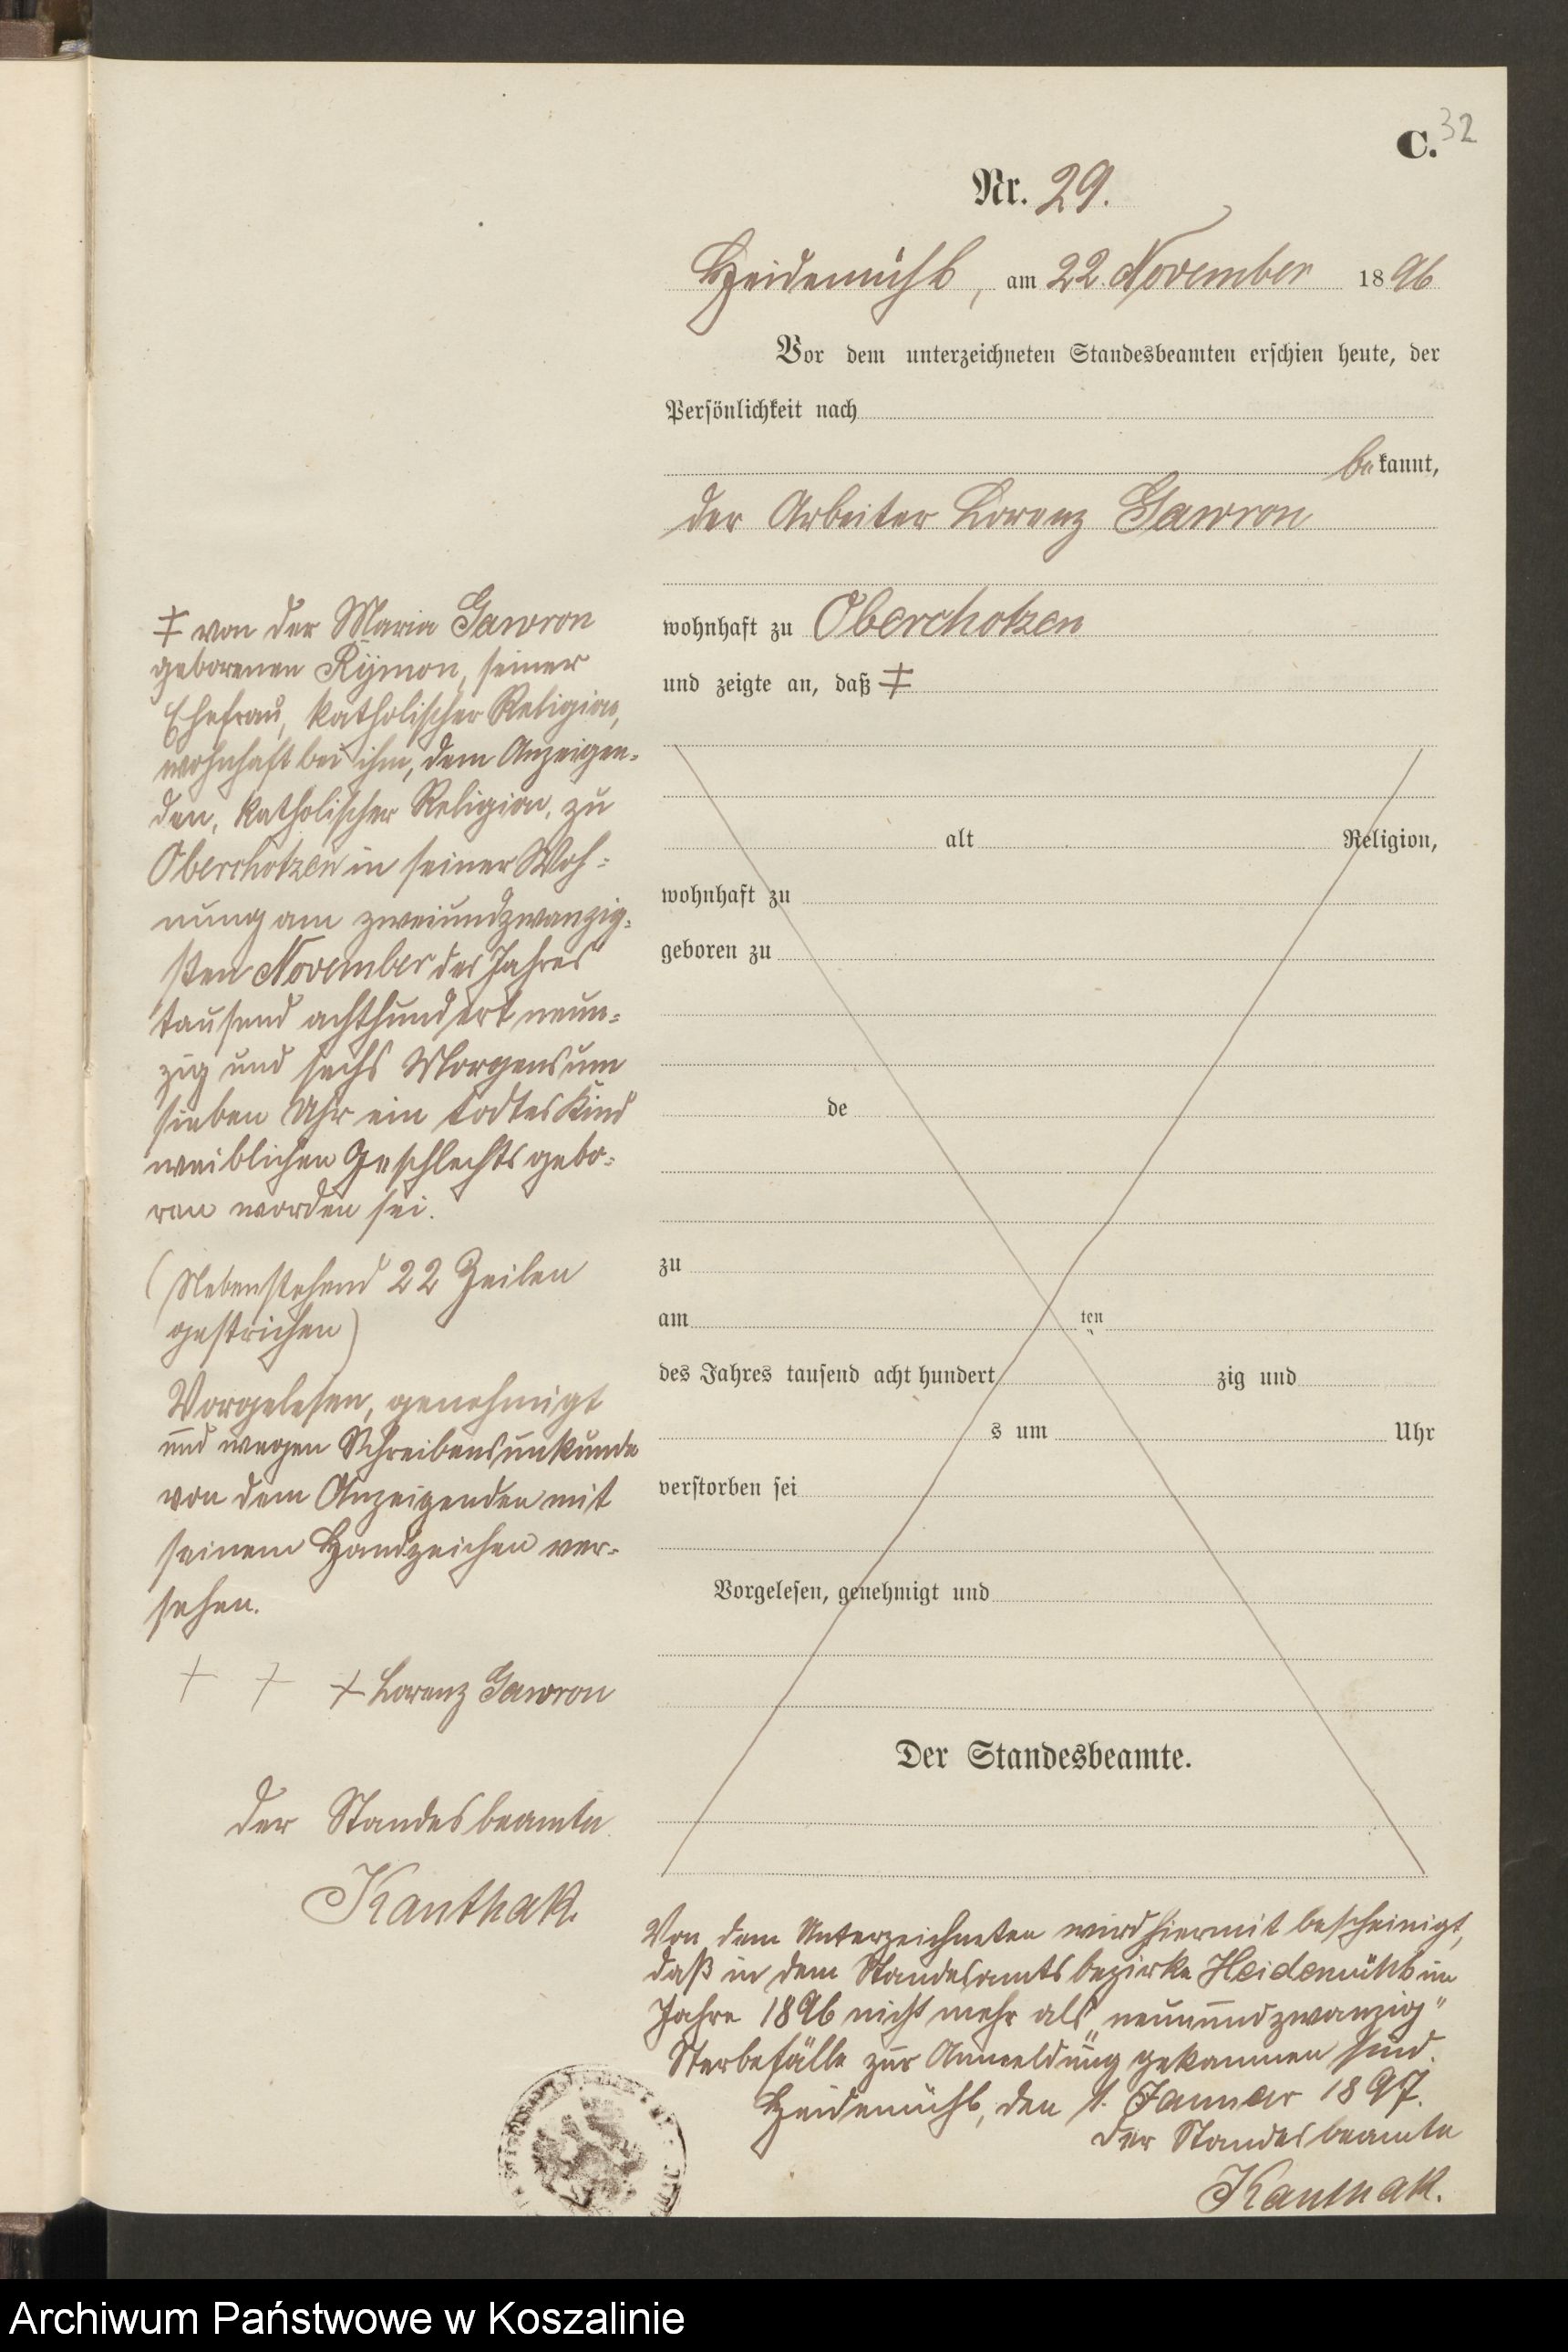 C. 32
Nr. 29.
Heidemühl, am 22. November 1896
Vor dem unterzeichneten Standesbeamten erschien heute, der
Persönlichkeit nach
bekannt,
der Arbeiter Lorenz Gawron
wohnhaft zu Oberchotzen
und zeigte an, daß ‡
alt Religion,
wohnhaft zu
geboren zu
de
zu
am ten
des Jahres tausend acht hundert zig und
s um Uhr
verstorben sei
Vorgelesen, genehmigt und
Der Standesbeamte.
‡ von der Maria Gawron
geborenen Rymon, seiner
Ehefrau, katholischer Religion,
wohnhaft bei ihm, dem Anzeigen-
den, katholischer Religion, zu
Oberchotzen in seiner Woh-
nung am zweiundzwanzig-
sten November des Jahres
tausend achthundert neun-
zig und sechs Morgens um
sieben Uhr ein todtes Kind
weiblichen Geschlechts gebo-
ren worden sei.
(Nebenstehend 22 Zeilen
gestrichen)
Vorgelesen, genehmigt
und wegen Schreibensunkunde
von dem Anzeigenden mit
seinem Handzeichen ver-
sehen.
+ + + Lorenz Gawron
Der Standesbeamte
Kanthak.
Von dem Unterzeichneten wird hiermit bescheinigt,
daß in dem Standesamtsbezirke Heidemühl im
Jahre 1896 nicht mehr als „neunundzwanzig"
Sterbefälle zur Anmeldung gekommen sind.
Heidemühl, den 1. Januar 1897.
Der Standesbeamte
Kanthak.
Archiwum Państwowe w Koszalinie